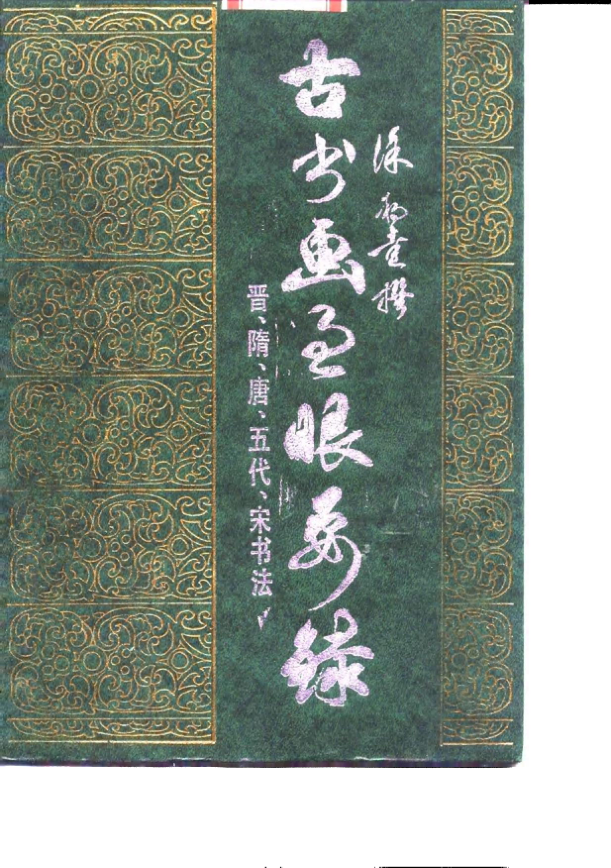 徐邦达撰
古书画过眼要录
晋、隋、唐、五代、宋书法